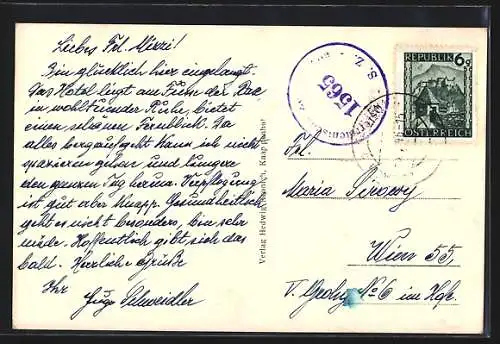 Liebes Frl. Mizzi!
Bin glücklich hier eingelangt.
Das Hotel liegt am Fusse der Rax
in wohltuender Ruhe, bietet
einen schönen Fernblick. Da
alles bergauf geht kann ich nicht
spazieren gehen und lungere
den ganzen Tag herum. Verpflegung
ist gut aber knapp. Gesundheitlich
geht es nicht besonders, bin sehr
müde. Hoffentlich gibt sich das
bald. Herzliche Grüsse
Ihr
Hugo Schneidler
Verlag Hedwig
S. Z.
1565
REPUBLIK 6g
ÖSTERREICH
Frl.
Maria
Wien 55,
V. No 6 im Hfe.